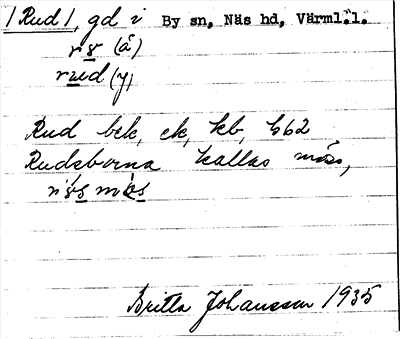 /Rud/, gd i By sn, Näs hd, Värml.l.
rs (å)
rud (y)
Rud bck, ek, kb, 662
Rudsborna kallas mås,
Britta Johansson 1935